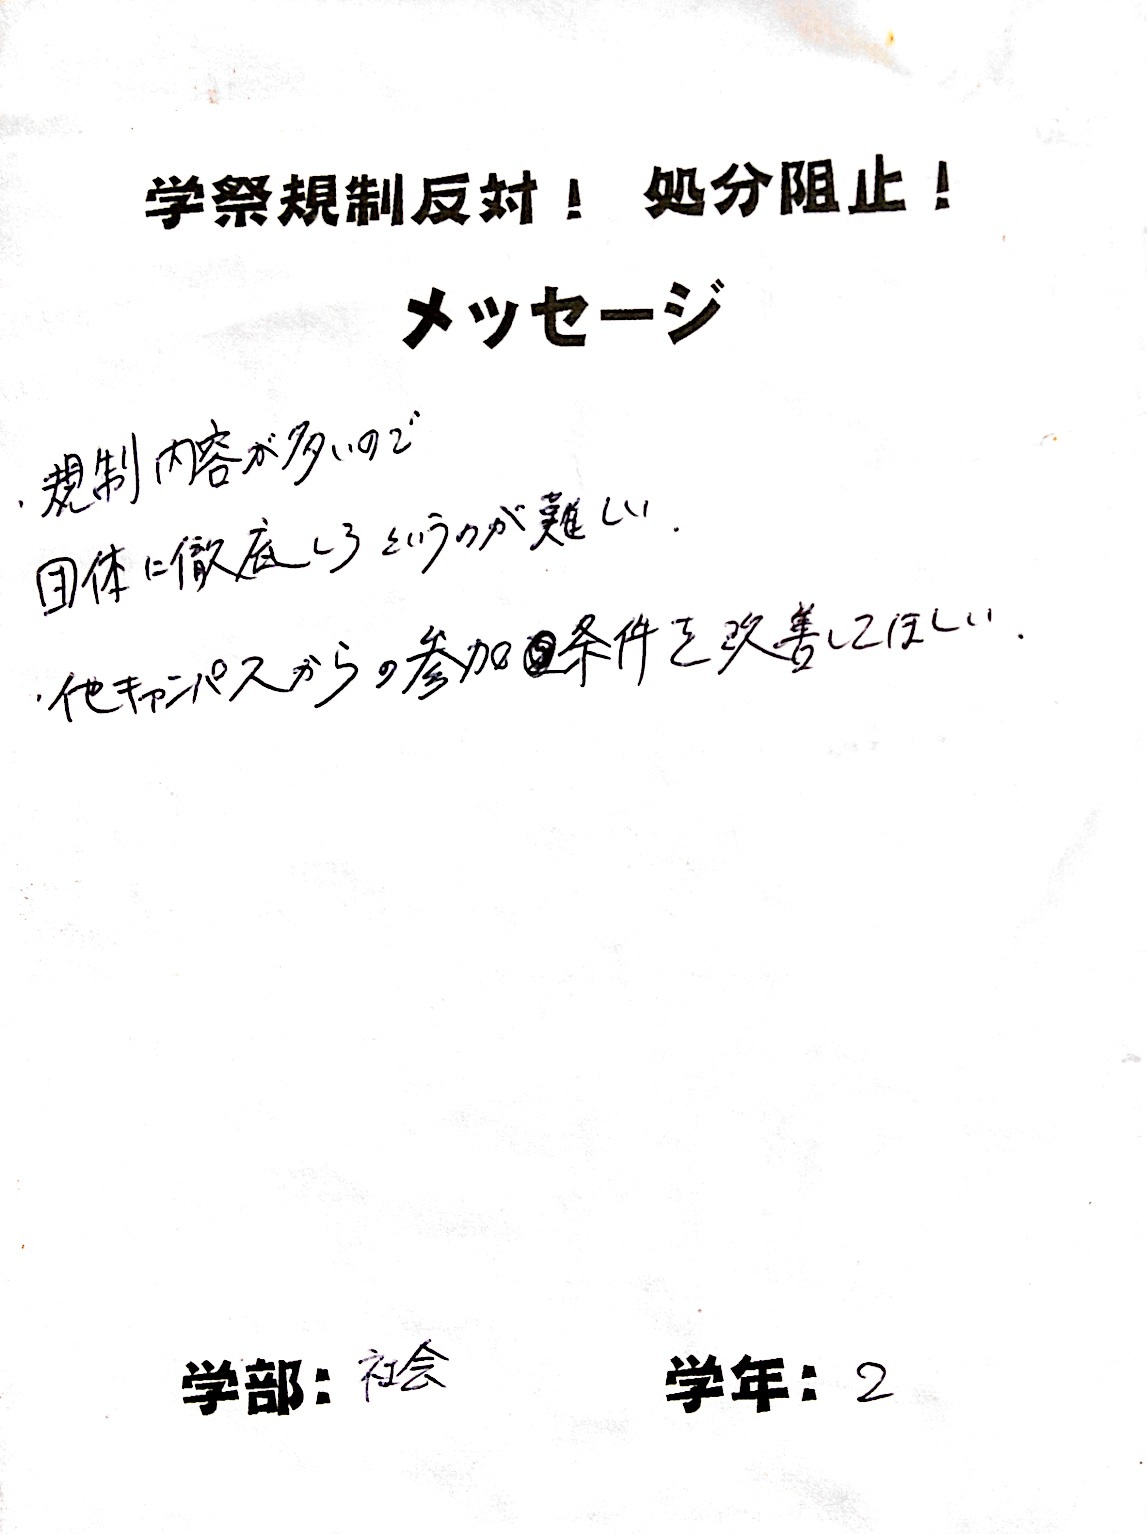 学祭規制反対! 処分阻止!
メッセージ
・規制内容が多いので
団体に徹底しろというのが難しい.
・他キャンパスからの参加条件を改善してほしい.
学部: 社会
学年: 2